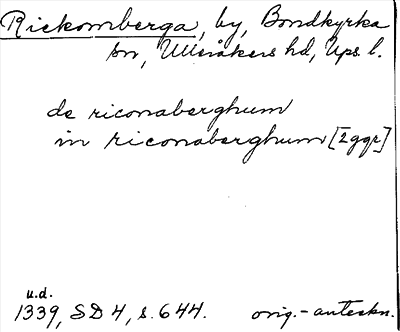 Rickomberga, by, Bondkyrka
sn, Ulleråkers hd, Ups. l.
de riconaberghum
in riconaberghum [2 ggr]
u.d.
1339, SD 4, s. 644. orig.-anteckn.